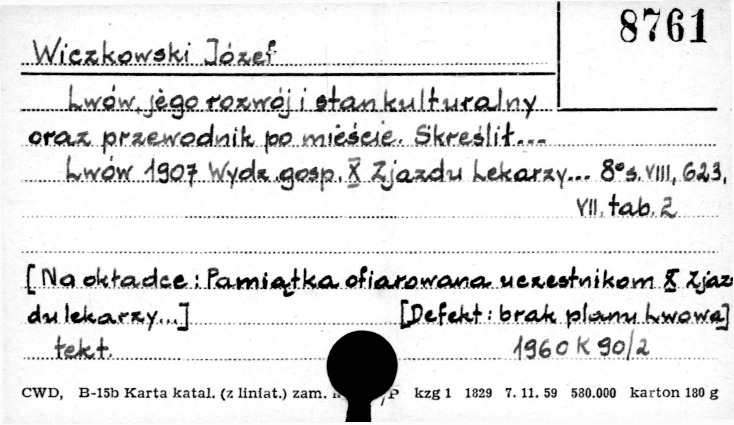 8761
Wiczkowski Józef
Lwów, jego rozwój i stan kulturalny
oraz przewodnik po mieście. Skreślił...
Lwów 1907 Wydz. gosp. X Zjazdu Lekarzy... 8° s. VIII, 623,
VII. tab. 2
[Na okładce: Pamiątka ofiarowana uczestnikom X Zjaz
du lekarzy...] [Defekt: brak planu Lwowa]
tekt. 1960 K 90/2
CWD, B-15b Karta katal. (z liniat.) zam. /P kzg 1 1829 7. 11. 59 580.000 karton 180 g